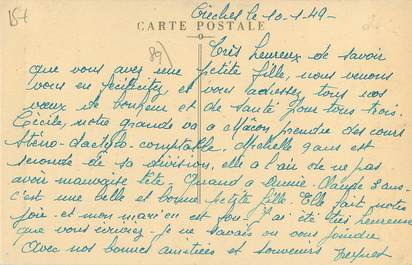 Crèches le 10-1-49-
CARTE POSTALE
Très heureux de savoir
que vous avez une petite fille, nous venons
vous en féliciter, et vous adressez tous nos
vœux de bonheur et de santé pour tous trois.
Cécile, notre grande va a Mâcon prendre des cours
sténo-dactylo-comptable. Michelle 9 ans est
seconde de sa division, elle a l'air de ne pas
avoir mauvaise tête. Quand a Annie-Claude 3 ans-
c'est une belle et bonne petite fille. Elle fait notre
joie- et mon mari en est fou. J'ai été très heureuse
que vous écriviez- je ne savais ou vous joindre
Avec nos bonnes amitiées et souvenirs